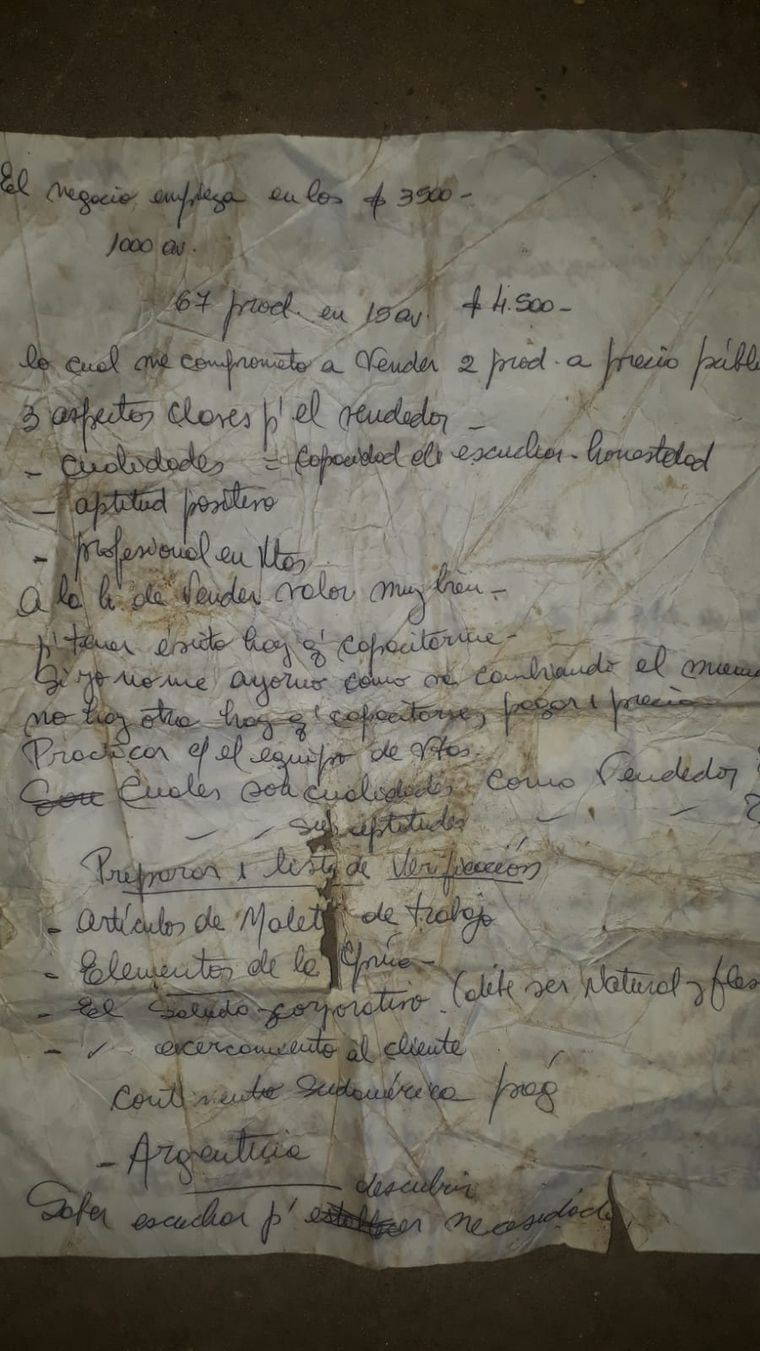 El negocio empieza en los $ 3500-
1000 av.
67 prod. en 15 av. $ 4.500-
lo cual me comprometo a Vender 2 prod. a precio públ
3 aspectos claves p' el vendedor -
- cualidades = capacidad de escuchar - honestidad
- aptitud positiva
- profesional en Vtas
A la h de Vender valor muy bien -
p' tener éxito hay q' capacitarme -
Si yo no me ayorno como va cambiando el
no hay otra hay q' capacitarse, pagar 1 precio
Practicar c/ el equipo de Vtas.
Cuales son cualidades como Vendedor ?
" " sus aptitudes " " ?
Preparar 1 lista de Verificación
- artículos de Malet de trabajo
- Elementos de la
- El Saludo corporativo. (debe ser Natural y
- " acercamiento al cliente
Continente Sudamérica pág
- Argentina
descubrir
Saber escuchar p' necesidad